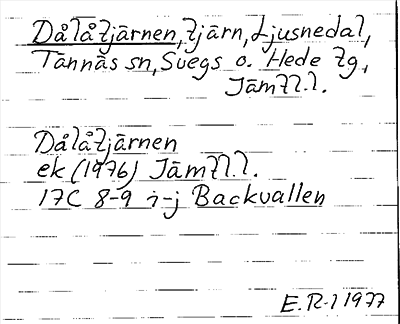 Dålåtjärnen, tjärn, Ljusnedal,
Tännäs sn, Svegs o. Hede tg,
Jämtl.l.
Dålåtjärnen
ek (1976) Jämtl.l.
17C 8-9 i-j Backvallen
E.R-l 1977